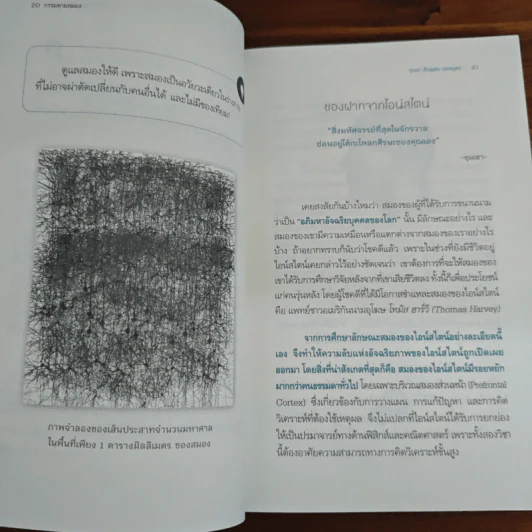 20 กรรมตามสมอง
ดูแลสมองให้ดี เพราะสมองเป็นอวัยวะเดียวในร่างกาย
ที่ไม่อาจผ่าตัดเปลี่ยนกับคนอื่นได้ และไม่มีของเทียม!
ภาพจำลองของเส้นประสาทจำนวนมหาศาล
ในพื้นที่เพียง 1 ตารางมิลลิเมตร ของสมอง
21
ของฝากจากไอน์สไตน์
"สิ่งมหัศจรรย์ที่สุดในจักรวาล
ซ่อนอยู่ใต้กะโหลกศีรษะของคุณเอง"
เคยสงสัยกันบ้างไหมว่า สมองของผู้ที่ได้รับการขนานนาม
ว่าเป็น "อภิมหาอัจฉริยบุคคลของโลก" นั้น มีลักษณะอย่างไร และ
สมองของเขามีความเหมือนหรือแตกต่างจากสมองของเราอย่างไร
บ้าง ถ้าอยากทราบก็นับว่าโชคดีแล้ว เพราะในช่วงที่ยังมีชีวิตอยู่
ไอน์สไตน์เคยกล่าวไว้อย่างชัดเจนว่า เขาต้องการที่จะให้สมองของ
เขาได้รับการศึกษาวิจัยหลังจากที่เขาเสียชีวิตลง ทั้งนี้ก็เพื่อประโยชน์
แก่คนรุ่นหลัง โดยผู้โชคดีที่ได้มีโอกาสชำแหละสมองของไอน์สไตน์
คือ แพทย์ชาวอเมริกันนามอุโฆษ โทมัส ฮาร์วีย์ (Thomas Harvey)
จากการศึกษาลักษณะสมองของไอน์สไตน์อย่างละเอียดนี้
เอง จึงทำให้ความลับแห่งอัจฉริยภาพของไอน์สไตน์ถูกเปิดเผย
ออกมา โดยสิ่งที่น่าสังเกตที่สุดก็คือ สมองของไอน์สไตน์มีรอยหยัก
มากกว่าคนธรรมดาทั่วไป โดยเฉพาะบริเวณสมองส่วนหน้า (Prefrontal
Cortex) ซึ่งเกี่ยวข้องกับการวางแผน การแก้ปัญหา และการคิด
วิเคราะห์ที่ต้องใช้เหตุผล จึงไม่แปลกที่ไอน์สไตน์ได้รับการยกย่อง
ให้เป็นปรมาจารย์ทางด้านฟิสิกส์และคณิตศาสตร์ เพราะทั้งสองวิชา
นี้ต้องอาศัยความสามารถทางการคิดวิเคราะห์ขั้นสูง